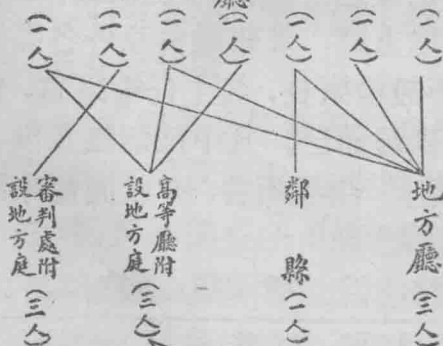 廳
(一人)
(一人)
(一人)
(一人)
(一人)
(一人)
(一人)
地方廳(三人)
鄰縣(一人)
高等廳附
設地方庭(三人)
審判處附
設地方庭(三人)